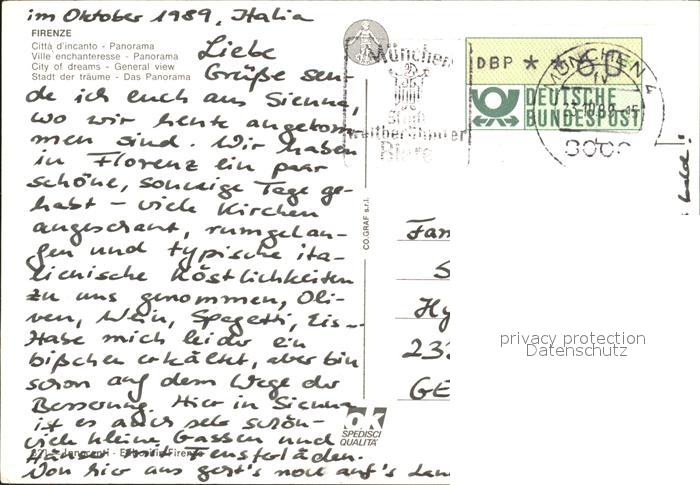 im Oktober 1989, Italia
FIRENZE
Città d'incanto - Panorama
Ville enchanteresse - Panorama
City of dreams - General view
Stadt der träume - Das Panorama
Liebe
Grüße sen-
de ich euch aus Sienna,
wo wir heute angekom-
men sind. Wir haben
in Florenz ein paar
schöne, sonnige Tage ge-
habt - viele Kirchen
angeschaut, rumgelau-
fen und typische ita-
lienische Köstlichkeiten
zu uns genommen, Oli-
ven, Wein, Spagetti, Eis...
Habe mich leider ein
bißchen erkältet, aber bin
schon auf dem Wege der
Besserung. Hier in Sienna
ist es auch sehr schön -
viele kleine Gassen und
Häuser mit Fensterläden.
Von hier aus geht's noch auf's Lan
Innocenti - Firenze
CO.GRAF s.r.l.
OK
SPEDISCI
QUALITÀ
München
Stadt
weltberühmter
Biere
DBP * * 60
DEUTSCHE
BUNDESPOST
MÜNCHEN 4
8000
Fam
S
Hy
23
GE
privacy protection
Datenschutz